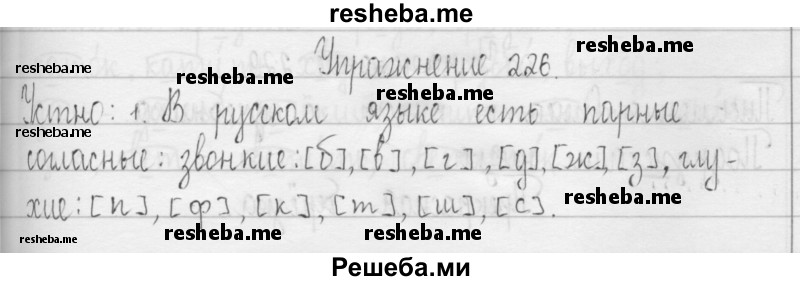 resheba.me
resheba.me
Упражнение 226.
resheba.me
resheba.me
resheba.me
Устно: 1. В русском языке есть парные
resheba.me
согласные: звонкие: [б], [в], [г], [д], [ж], [з], глу-
resheba.me
хие: [п], [ф], [к], [т], [ш], [с].
resheba.me
resheba.me
resheba.me
Решеба.ми